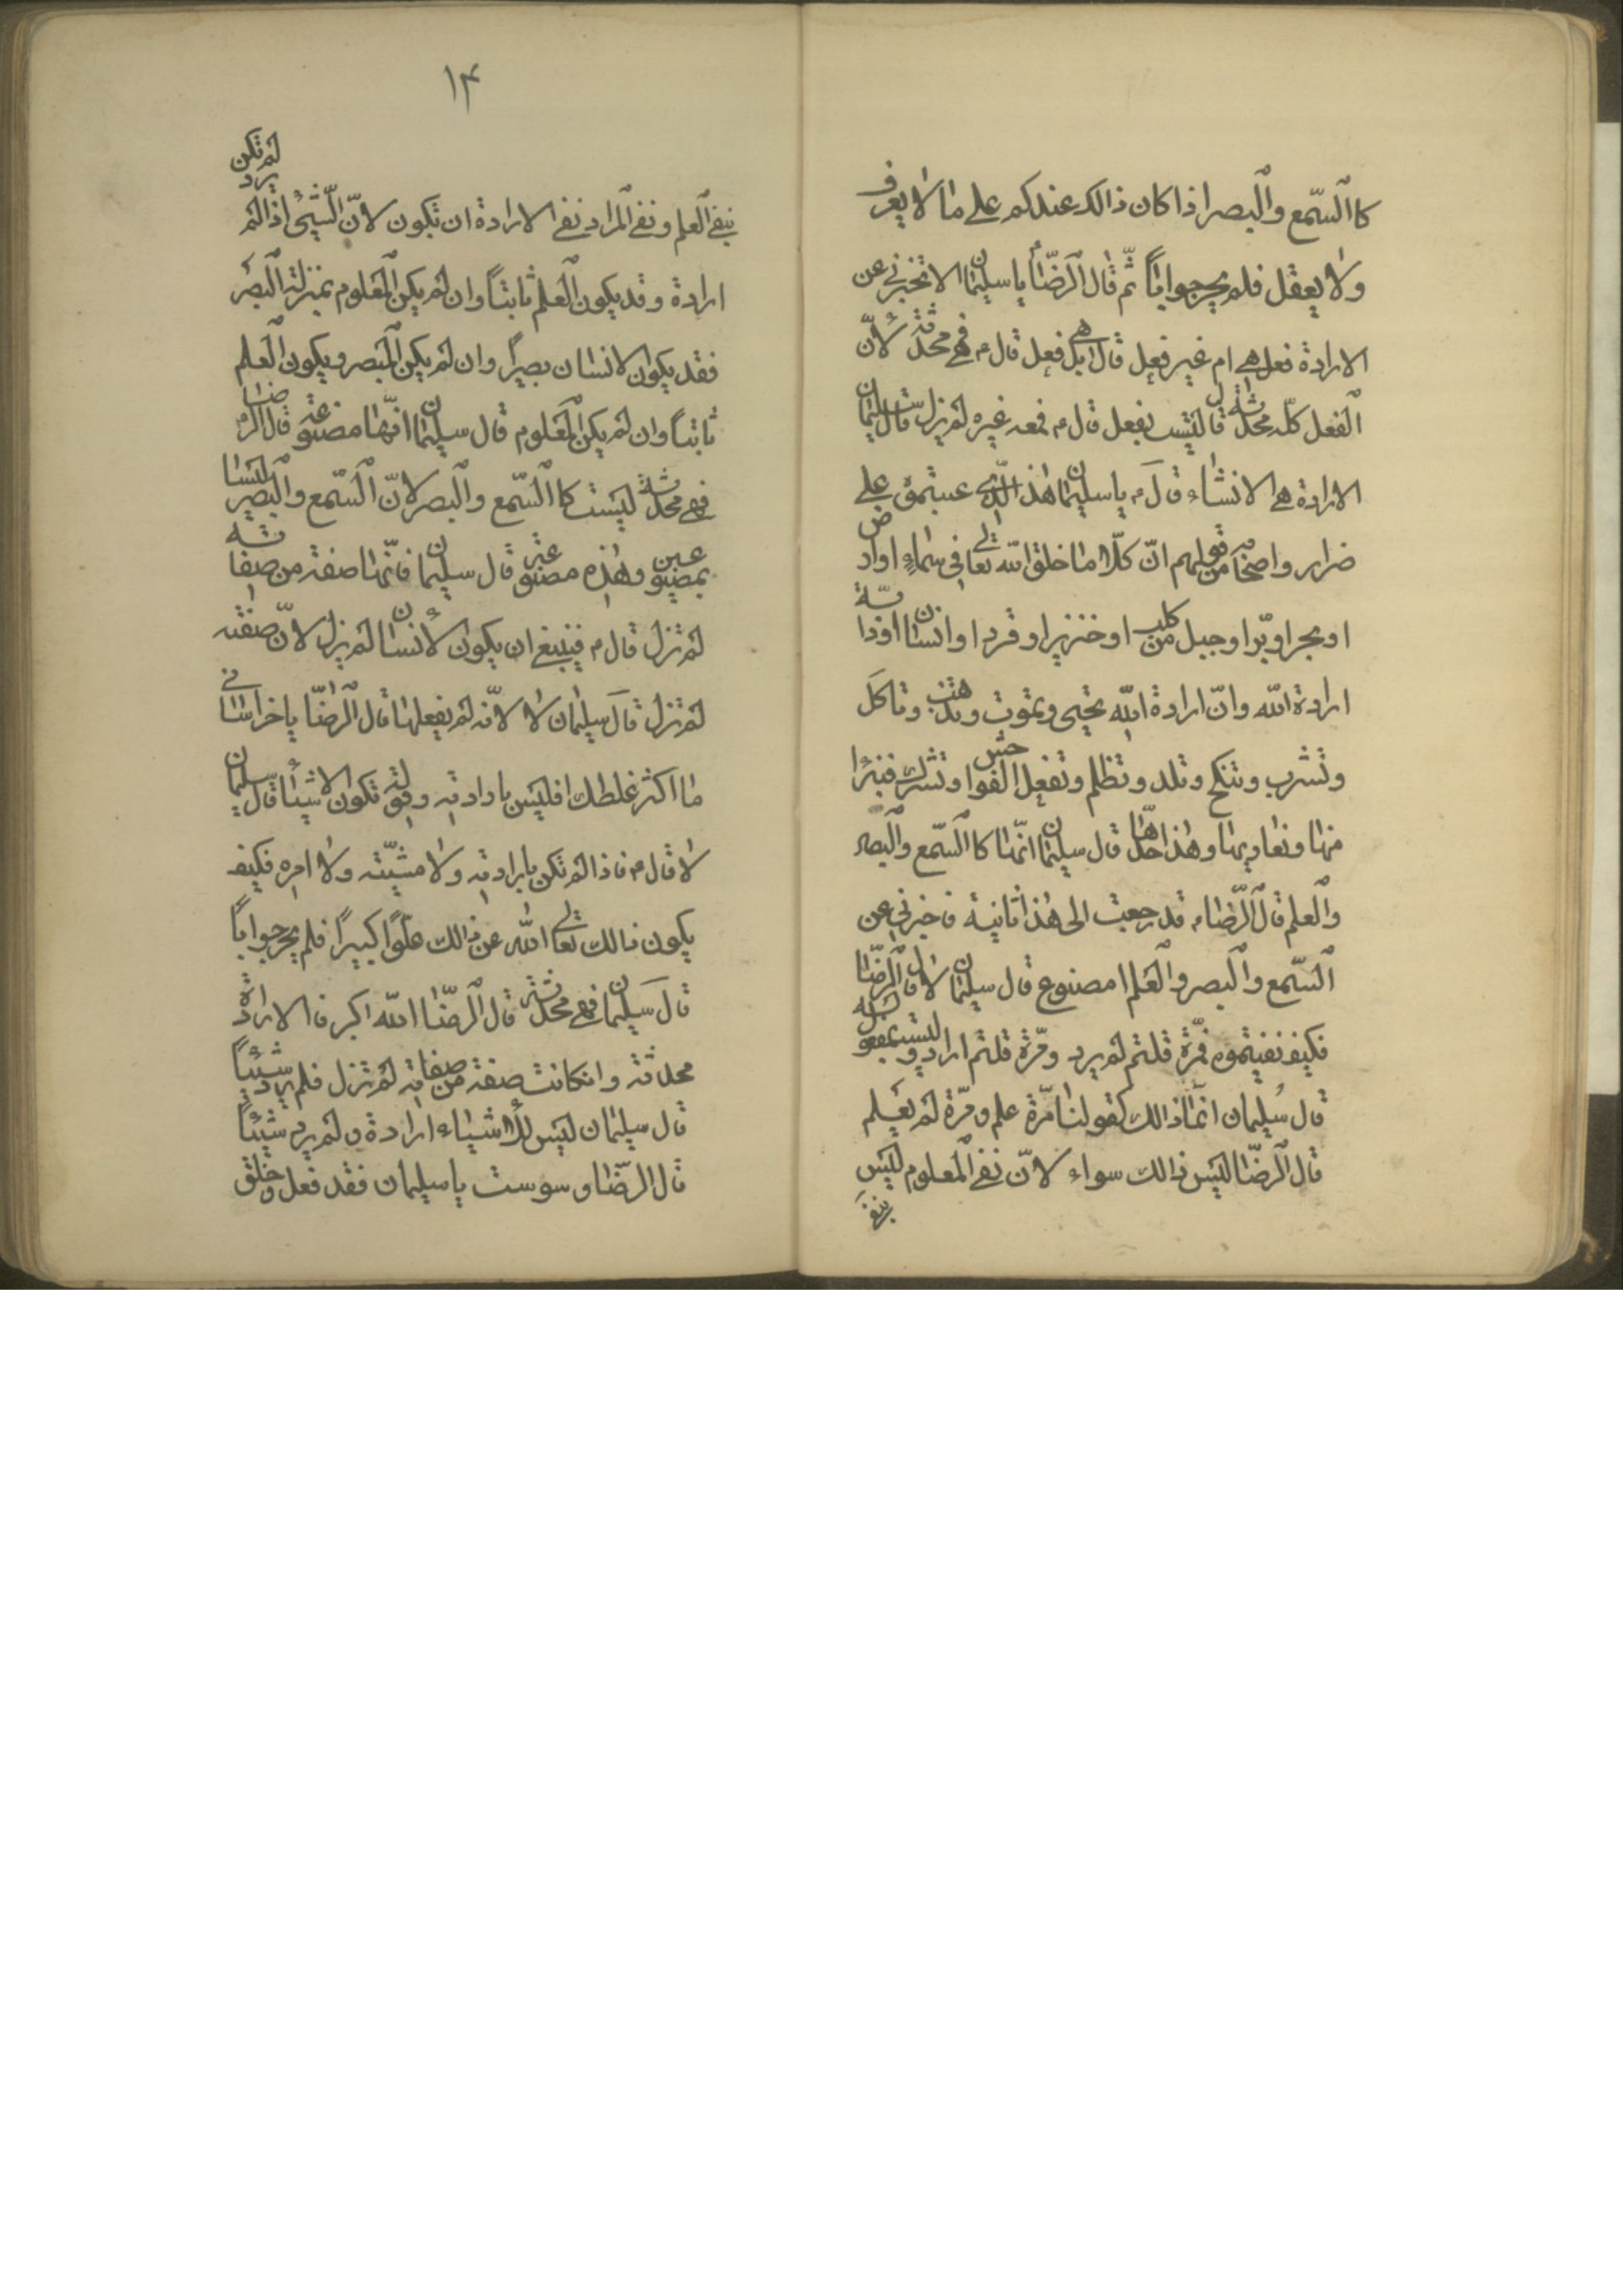 كا السّمع والبصر اذا كان ذالك عندكم على ما لا يعرف
ولا يعقل فلم يحر جواباً ثمّ قال الرضّا يا سليمان الا تخبرني عن
الارادة فعل هي ام غير فعل قال بل هي فعل قال م فهي محدثة لانّ
الفعل كلّه محدث قال ليست بفعل قال م فمعه غيره لم يزل قال سليمان
الارادة هي الانشاء قال م يا سليمان هذا الّذي عبتموه على
ضرار واصحابه من قولهم انّ كلّما خلق الله تعالى في سماء او ارض
او بحر او برّ او جبل من كلب او خنزير او قرد او انسان او دابّة
ارادة الله وانّ ارادة الله تحيى وتموت وتذهب وتاكل
وتشرب وتنكح وتلد وتظلم وتفعل الفواحش وتشرك فتبرّا
منها ونعاديها وهذا حدّها قال سليمان انّها كا السّمع والبصر
والعلم قال الرّضا م قد رجعت الى هذا ثانية فاخبرني عن
السّمع والبصر والعلم ا مصنوع قال سليمان لا قال الرّضا
فكيف نفيتموه فمرّة قلتم لم يرد ومرّة قلتم اراد وليست بمفعول له
قال سليمان انّما ذالك كقولنا مرّة علم ومرّة لم يعلم
قال الرضّا ليس ذالك سواء لانّ نفي المعلوم ليس
بنفي
١٤
بنفي العلم ونفي المراد نفي الارادة ان تكون لانّ الشّيئ اذا لم يرد لم تكن
ارادة وقد يكون العلم ثابتاً وان لم يكن المعلوم بمنزلة البصر
فقد يكون الانسان بصيراً وان لم يكن المبصر ويكون العلم
ثابتاً وان لم يكن المعلوم قال سليمان انّها مصنوعة قال الرضا م
فهي محدثة ليست كا السّمع والبصر لانّ السّمع والبصر ليسا
بمصنوعين وهذه مصنوعة قال سليمان فانّها صفة من صفاته
لم تزل قال م فينبغي ان يكون الانسان لم يزل لانّ صفته
لم تزل قال سليمان لا لانّه لم يفعلها قال الرضّا يا خراسانى
ما اكثر غلطك افليس بارادته وقوله تكون الاشياء قال سليمان
لا قال م فاذا لم تكن بارادته ولا مشيّته ولا امره فكيف
يكون ذالك تعالى الله عن ذالك علوّاً كبيراً فلم يحر جواباً
قال سليمان فهي محدثة قال الرضّا الله اكبر فا الارادة
محدثة وانكانت صفة من صفاته لم تزل فلم يرد شيئاً
قال سليمان ليس للاشياء ارادة ولم يرد شيئاً
قال الرضّا وسوست يا سليمان فقد فعل وخلق